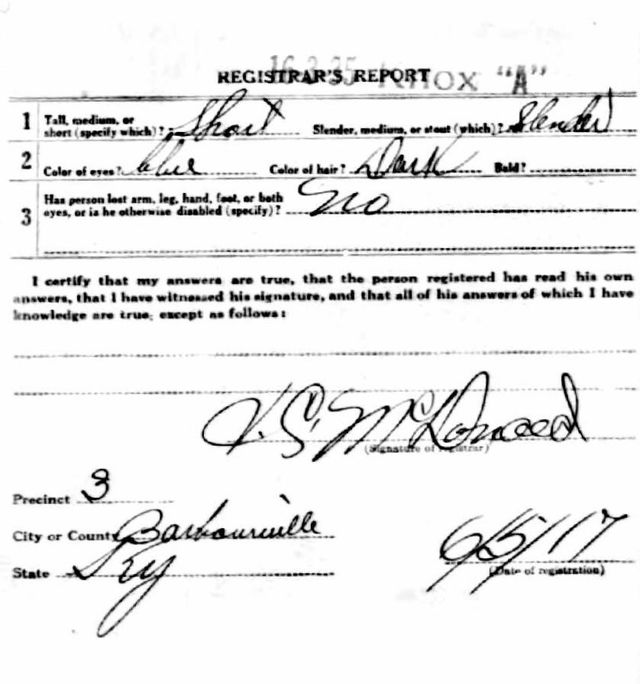 16 3 35 KNOX "A"
REGISTRAR'S REPORT
1 Tall, medium, or short (specify which)? Short Slender, medium, or stout (which)? Slender
2 Color of eyes? blue Color of hair? Dark Bald?
3 Has person lost arm, leg, hand, foot, or both eyes, or is he otherwise disabled (specify)? No
I certify that my answers are true, that the person registered has read his own
answers, that I have witnessed his signature, and that all of his answers of which I have
knowledge are true, except as follows:
(Signature of registrar)
Precinct 3
City or County Barbourville
State Ky
6/5/17
(Date of registration)